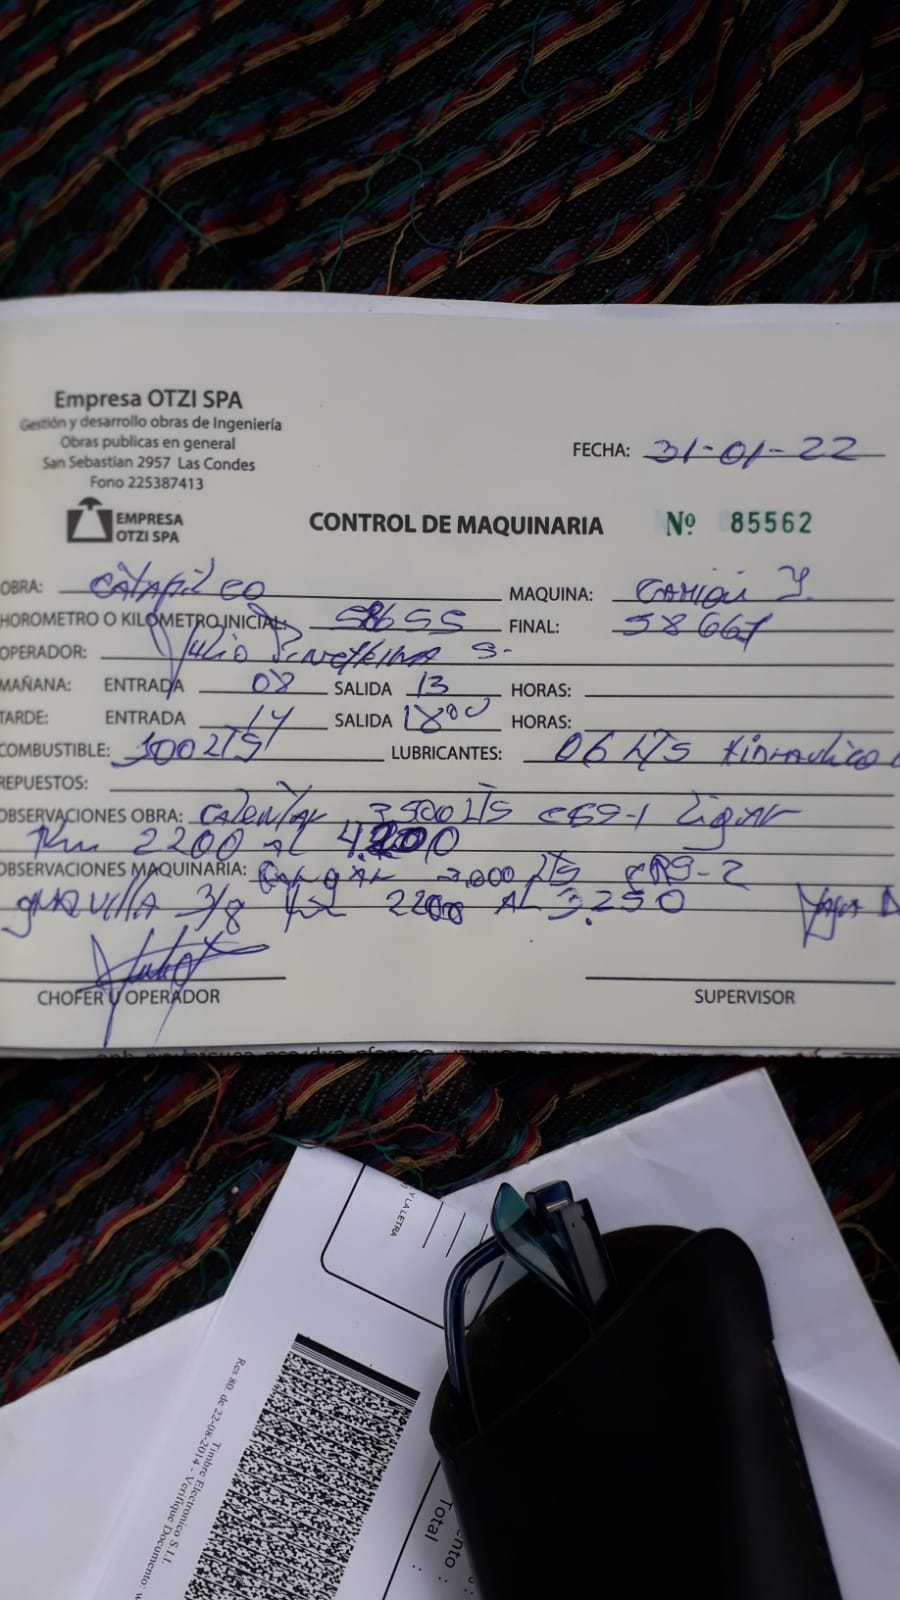 Empresa OTZI SPA
Gestión y desarrollo obras de Ingeniería
Obras publicas en general
San Sebastian 2957 Las Condes
Fono 225387413
FECHA: 31-01-22
EMPRESA
OTZI SPA
CONTROL DE MAQUINARIA Nº 85562
OBRA: CATAPILCO MAQUINA: CAMION
HOROMETRO O KILOMETRO INICIAL: 58655 FINAL: 58667
OPERADOR: Julio S.
MAÑANA: ENTRADA 08 SALIDA 13 HORAS:
TARDE: ENTRADA 14 SALIDA 18⁰⁰ HORAS:
COMBUSTIBLE: 100 LTS LUBRICANTES: 06 LTS HIDRAULICO
REPUESTOS:
OBSERVACIONES OBRA: CALENTAR 3500 LTS LIGAR
Km 2200 AL 4.200
OBSERVACIONES MAQUINARIA: CARGAR LTS CRS-2
GRAVILLA 3/8 Km 2200 AL 3.250
CHOFER U OPERADOR SUPERVISOR
Y LA LETRA
Res 80 de 22-08-2014 - Verifique Documento:
Timbre Electronico S.I.I.
ento :
Total :